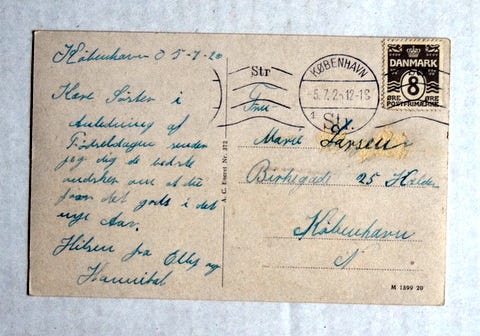 København Ø 5-7-20
Kære Søster i
Anledning af
Fødselsdagen sender
jeg dig de bedste
ønsker om at du
faar det godt i det
nye Aar.
Hilsen fra Olly og
Hannibal
A. C. Eneret Nr. 372
Str
KØBENHAVN
5.7.2 12-1S
1 Str.
DANMARK
8
ØRE ØRE
POSTFRIMÆRKE
Fru
Marie Larsen
Birksgade 25 Holder
København
N
M 1899 20